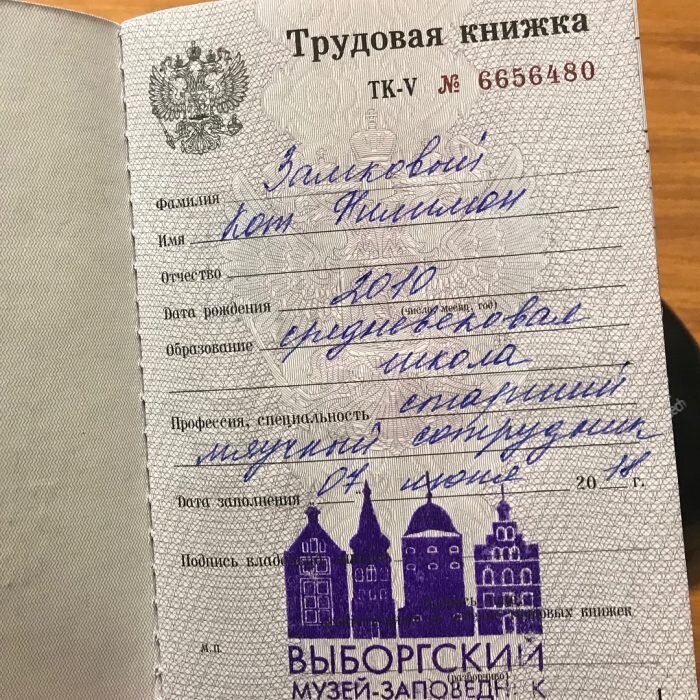 Трудовая книжка
ТК-V № 6656480
Фамилия Замковый
Имя Кот Филимон
Отчество
Дата рождения 2010
(число, месяц, год)
Образование средневековая
школа
Профессия, специальность старший
мяучный сотрудник
Дата заполнения 07 июня 2018 г.
Подпись владельца
трудовых книжек
М.П.
(разборчиво)
ВЫБОРГСКИЙ
МУЗЕЙ-ЗАПОВЕДНИК